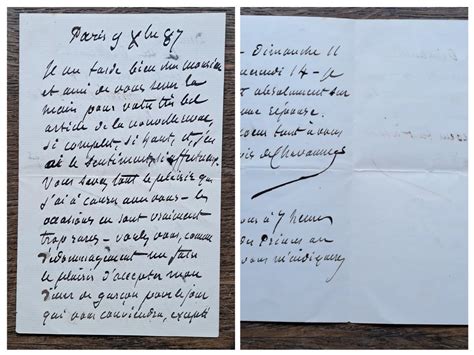 Paris 9 Xbre 87
Il me tarde bien monsieur
et ami de vous serrer la
main pour votre très bel
article de la nouvelle revue,
si complet si haut, et, j'en
ai le sentiment, si affectueux.
Vous savez tout le plaisir que
j'ai à causer avec vous – les
occasions en sont vraiment
trop rares – voulez vous, comme
dédommagement me faire
le plaisir d'accepter mon
diner de garçon pour le jour
qui vous conviendra, excepté
- Dimanche 11
ercredi 14 - Je
t absolument sur
une réponse.
coeur tout à vous
vis de Chavannes
ous à 7 heures
des Princes au
vous m'indiquerez